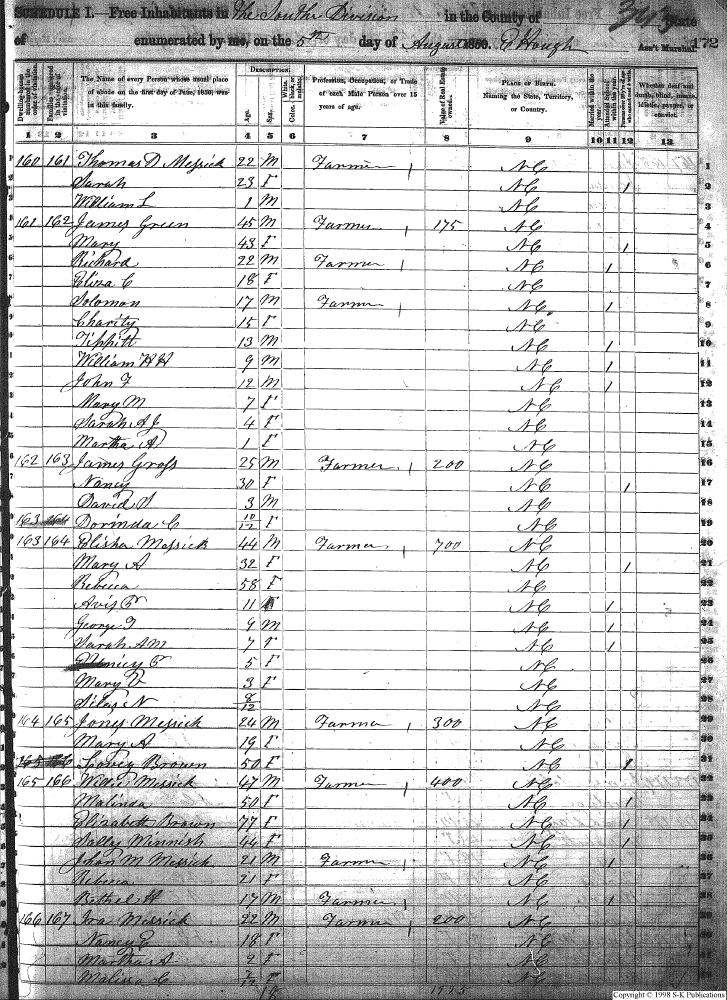 SCHEDULE I. Free Inhabitants in The South Division in the County of State
of enumerated by me, on the 5th day of August 1850. E Hough Ass't Marshal 172
343
DESCRIPTION.
The Name of every Person whose usual place of abode on the first day of June, 1850, was in this family.
Age. Sex.
Profession, Occupation, or Trade of each Male Person over 15 years of age.
Value of Real Estate owned.
PLACE OF BIRTH. Naming the State, Territory, or Country.
Married within the year.
Whether deaf and dumb, blind, insane, idiotic, pauper, or convict.
1 2 3 4 5 6 7 8 9 10 11 12 13
160 161 Thomas D Messick 22 M Farmer NC 1
Sarah 23 F NC 1 2
William L 1 M NC 3
161 162 James Green 45 M Farmer 175 NC 4
Mary 43 F NC 1 5
Richard 22 M Farmer NC 1 6
Eliza C 18 F NC 7
Solomon 17 M Farmer NC 1 8
Charity 15 F NC 9
Tippitt 13 M NC 1 10
William H H 9 M NC 1 11
John F 12 M NC 1 12
Mary M 7 F NC 13
Sarah A J 4 F NC 14
Martha A 1 F NC 15
162 163 James Gross 25 M Farmer 200 NC 16
Nancy 30 F NC 1 17
David S 3 M NC 18
163 Dorinda C 10/12 F NC 19
163 164 Elisha Messick 44 M Farmer 700 NC 20
Mary A 32 F NC 1 21
Rebecca 58 F NC 22
Avis 11 F NC 1 23
George 9 M NC 1 24
Sarah A M 7 F NC 1 25
5 F NC 26
Mary V 3 F NC 27
Silas N 8/12 NC 28
164 165 Jones Messick 24 M Farmer 300 NC 29
Mary A 19 F NC 30
Lovey Brown 50 F NC 1 31
165 166 Messick 47 M Farmer 400 NC 32
Malinda 50 F NC 1 33
Elizabeth Brown 77 F NC 1 34
Sally Minnish 44 F NC 1 35
John M Messick 21 M Farmer NC 1 36
Rebecca 21 F NC 37
Bethel H 17 M Farmer NC 1 38
166 167 Ira Messick 22 M Farmer 200 NC 39
Nancy E 18 F NC 40
Martha A 2 F NC 41
Malissa C F NC 42
Copyright © 1998 S-K Publications